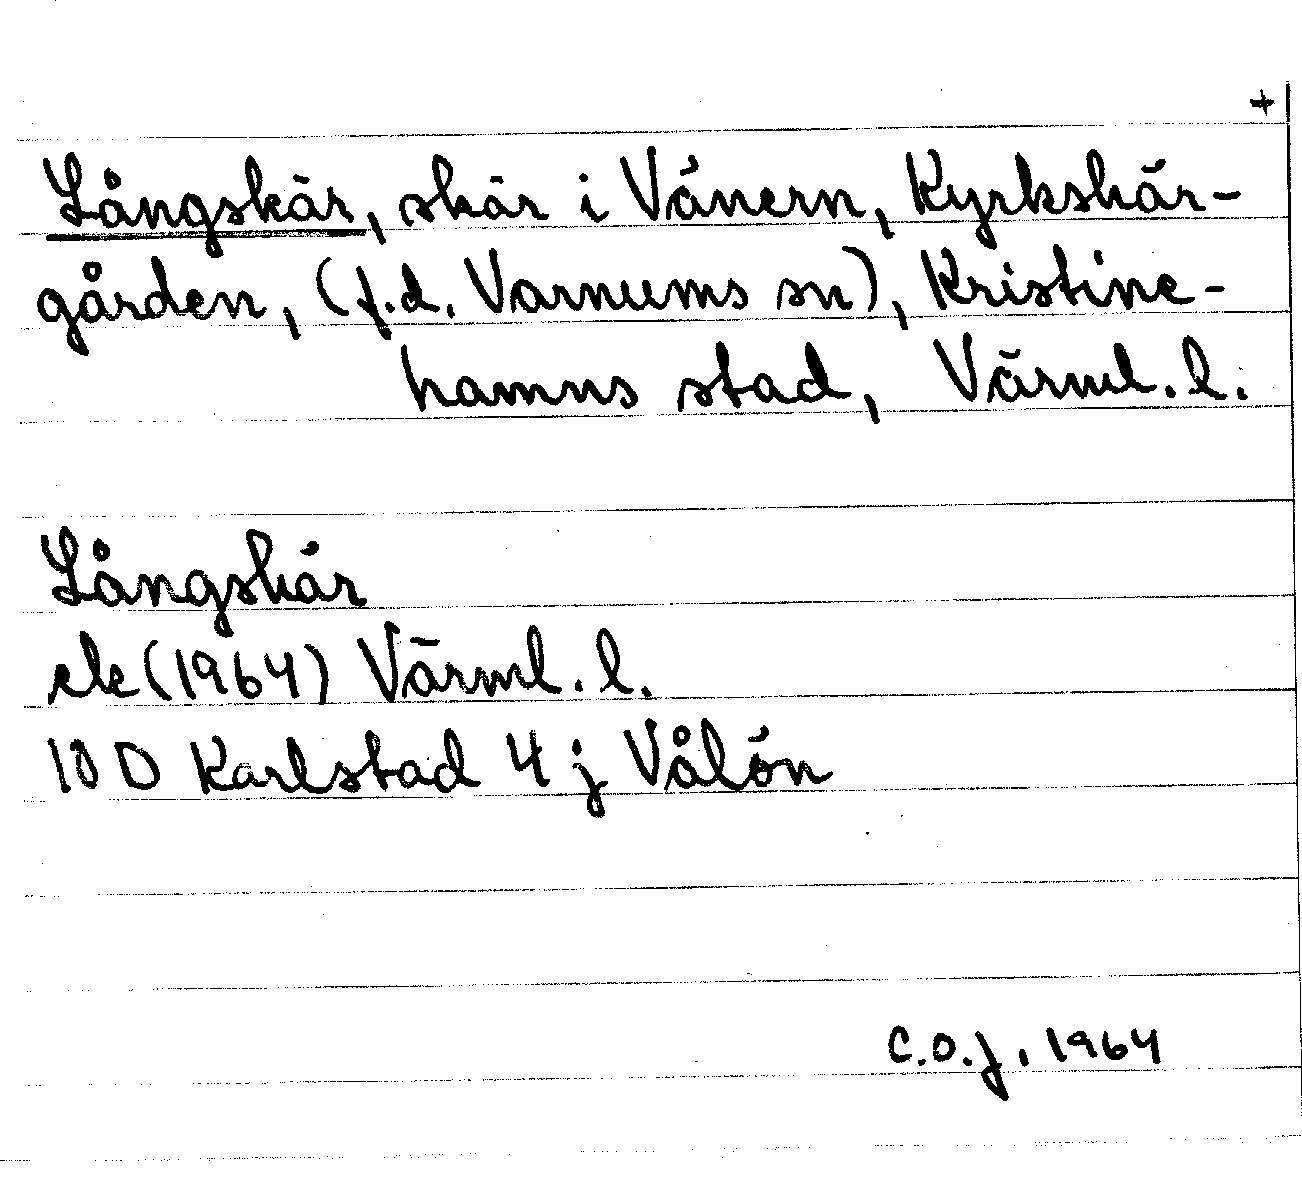 +
Långskär, skär i Vänern, Kyrkskär-
gården, (f.d. Varnums sn), Kristine-
hamns stad, Värml. l.
Långskär
ek (1964) Värml. l.
10 D Karlstad 4 j Vålön
C.O.J. 1964